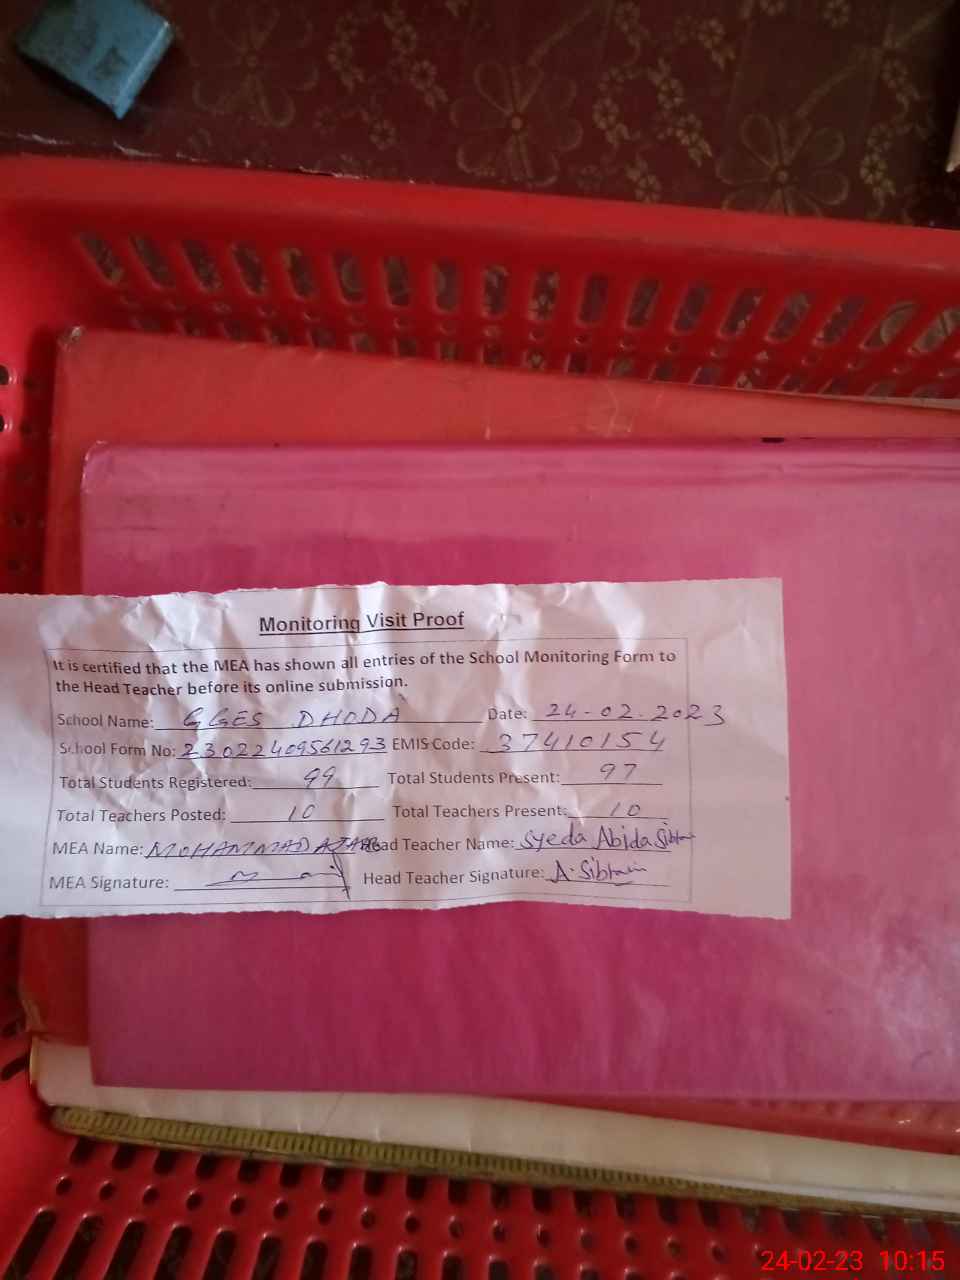 Monitoring Visit Proof
It is certified that the MEA has shown all entries of the School Monitoring Form to
the Head Teacher before its online submission.
School Name: GGES DHODA Date: 24-02-2023
School Form No: 23022409561293 EMIS Code: 37410154
Total Students Registered: 99 Total Students Present: 97
Total Teachers Posted: 10 Total Teachers Present: 10
MEA Name: MOHAMMAD Head Teacher Name: Syeda Abida Sibtain
MEA Signature: Head Teacher Signature: A. Sibtain
24-02-23 10:15